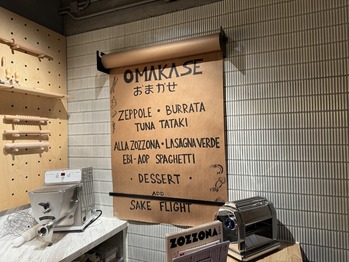 OMAKASE
おまかせ
ZEPPOLE • BURRATA
TUNA TATAKI
ALLA ZOZZONA • LASAGNA VERDE
EBI - AOP SPAGHETTI
• DESSERT •
ADD
SAKE FLIGHT
ZOZZONA